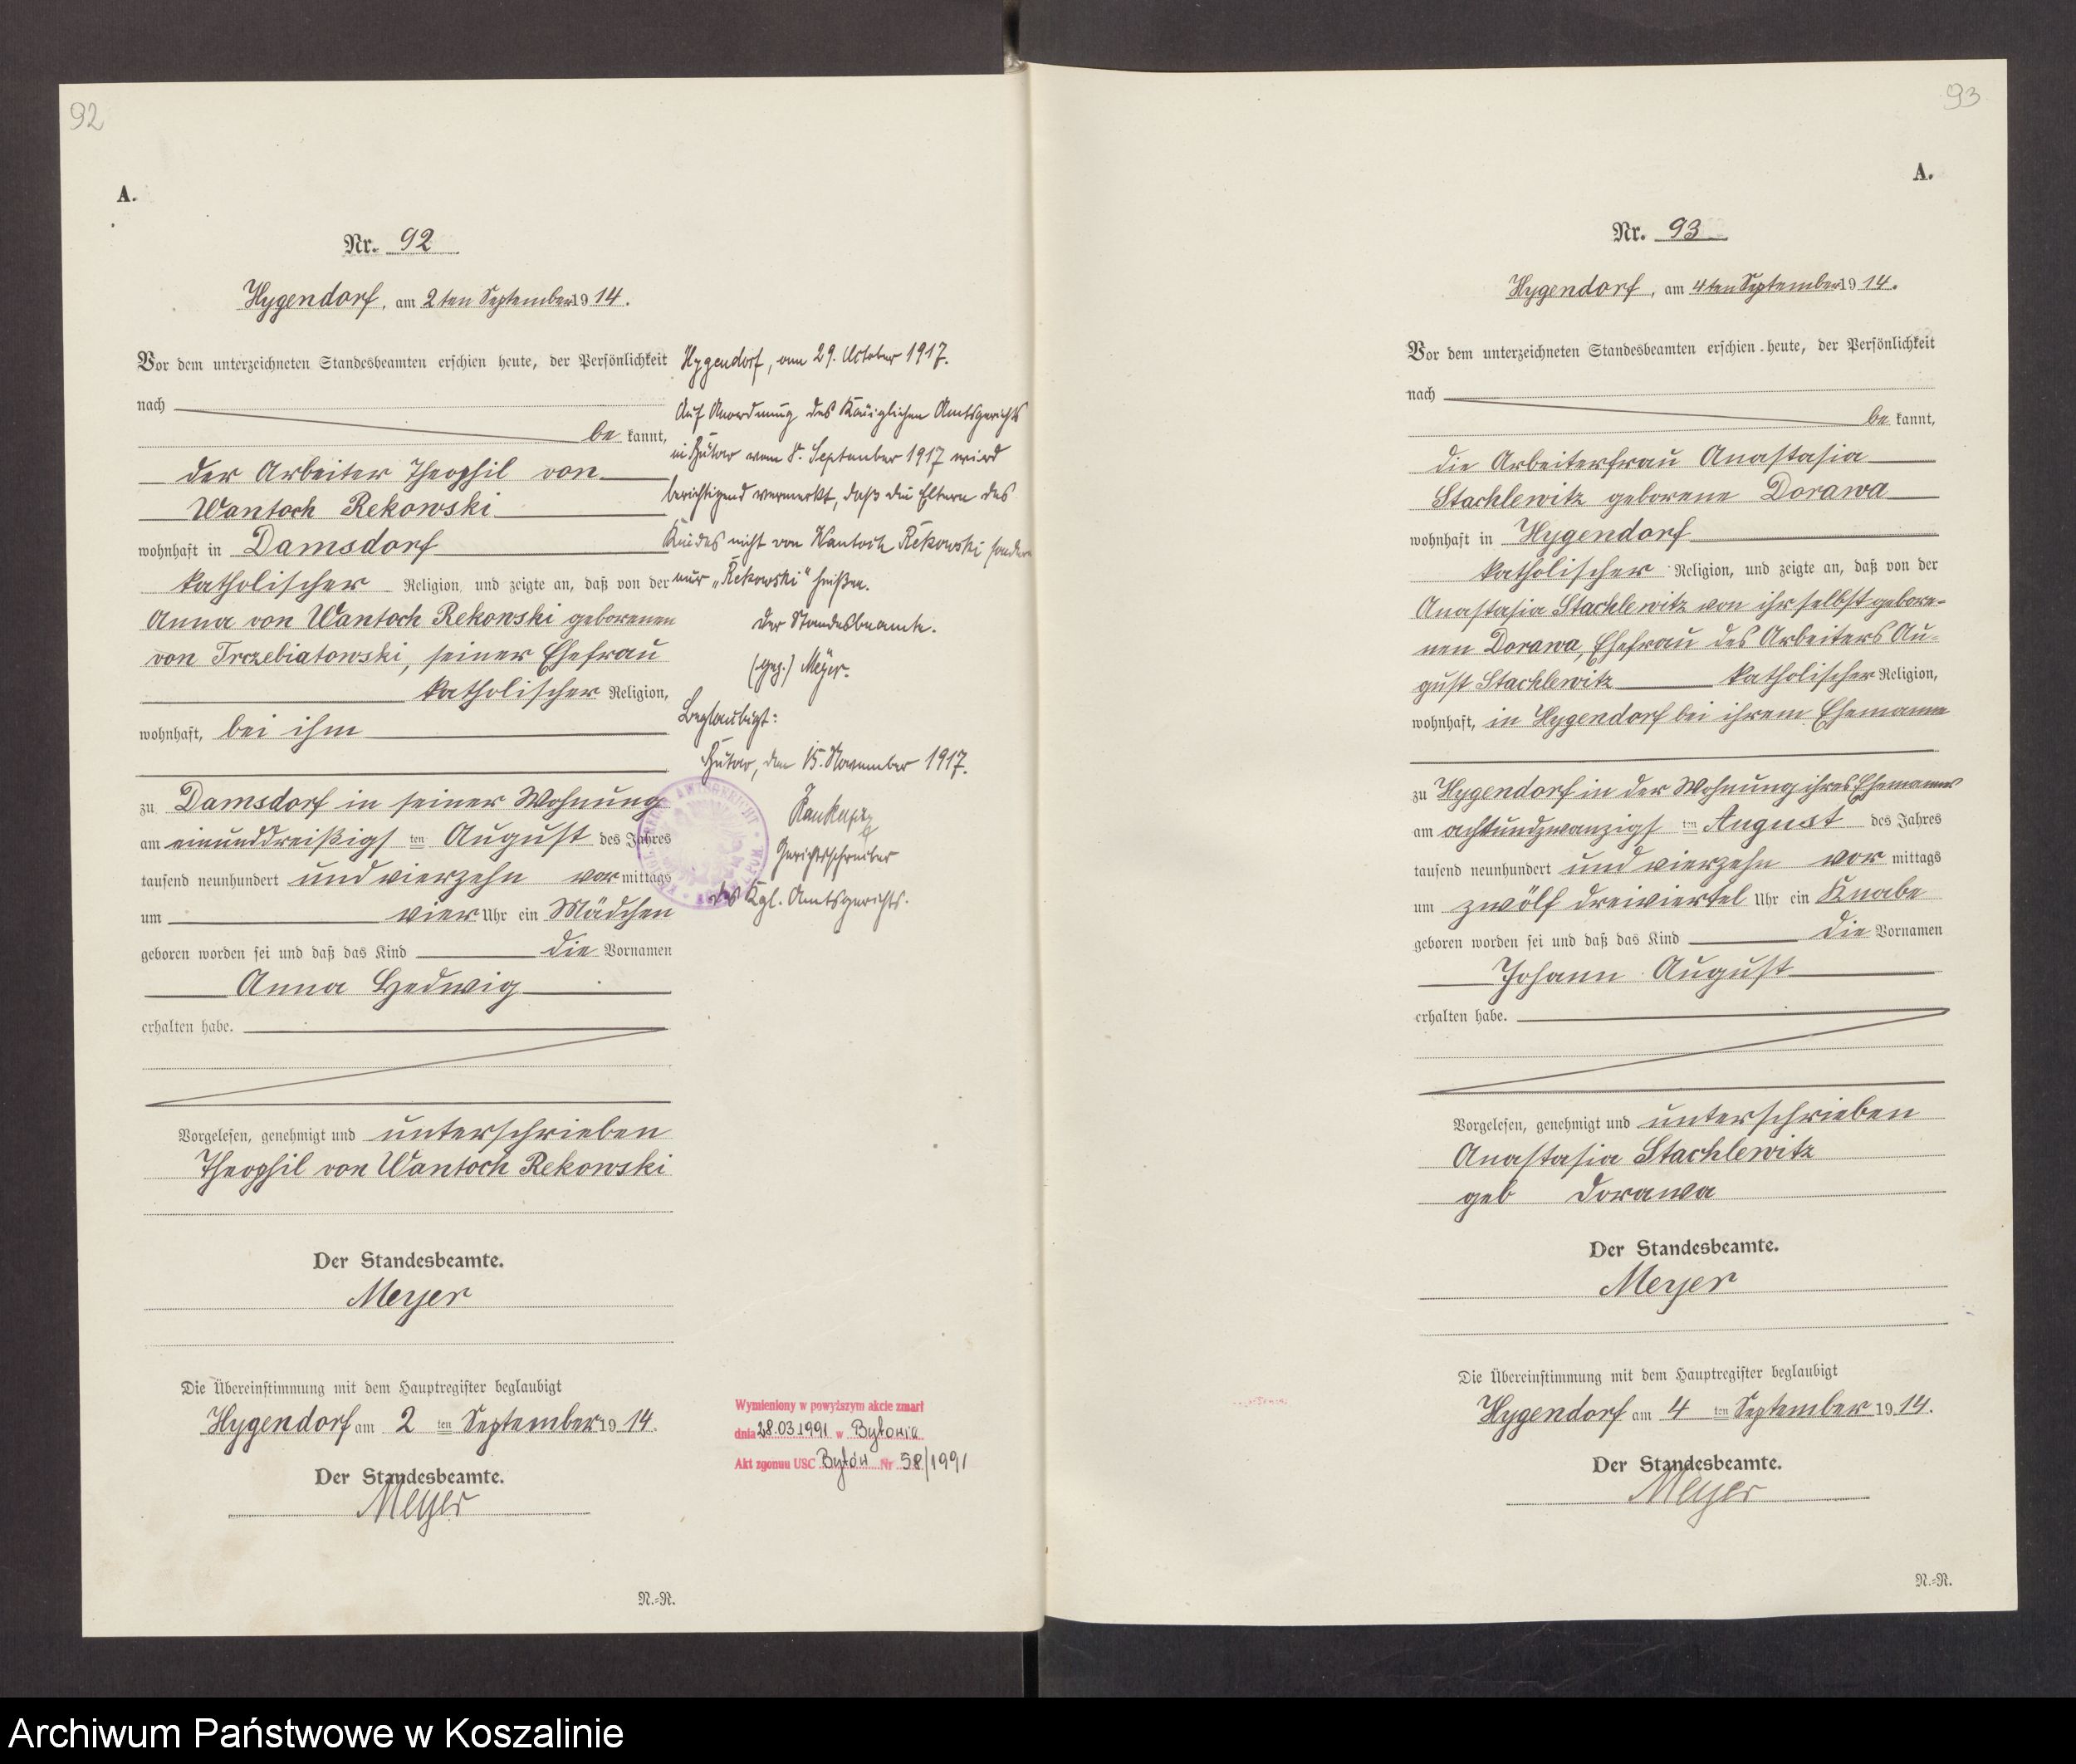 92
A.
Nr. 92
Hygendorf, am 2ten September 1914.
Vor dem unterzeichneten Standesbeamten erschien heute, der Persönlichkeit
nach
bekannt,
der Arbeiter Theophil von
Wantoch Rekowski
wohnhaft in Damsdorf
katholischer Religion, und zeigte an, daß von der
Anna von Wantoch Rekowski geborenen
von Trczebiatowski, seiner Ehefrau
katholischer Religion,
wohnhaft, bei ihm
zu Damsdorf in seiner Wohnung
am einunddreißigsten August des Jahres
tausend neunhundert und vierzehn vormittags
um vier Uhr ein Mädchen
geboren worden sei und daß das Kind die Vornamen
Anna Hedwig
erhalten habe.
Vorgelesen, genehmigt und unterschrieben
Theophil von Wantoch Rekowski
Der Standesbeamte.
Meyer
Die Übereinstimmung mit dem Hauptregister beglaubigt
Hygendorf am 2ten September 1914.
Der Standesbeamte.
Meyer
N.=R.
Hygendorf, am 29. October 1917.
Auf Anordnung des Königlichen Amtsgerichts
in Bütow vom 8. September 1917 wird
berichtigend vermerkt, daß die Eltern des
Kindes nicht von Wantoch Rekowski sondern
nur „Rekowski" heißen.
Der Standesbeamte.
(gez.) Meyer.
Beglaubigt:
Bütow, den 15. November 1917.
Gerichtsschreiber
des Kgl. Amtsgerichts.
Wymieniony w powyższym akcie zmarł
dnia 28.03.1991 w Bytowie
Akt zgonuu USC Bytów Nr 58/1991
93
A.
Nr. 93
Hygendorf, am 4ten September 1914.
Vor dem unterzeichneten Standesbeamten erschien heute, der Persönlichkeit
nach
bekannt,
die Arbeiterfrau Anastasia
Stachlewitz geborene Dorawa
wohnhaft in Hygendorf
katholischer Religion, und zeigte an, daß von der
Anastasia Stachlewitz von ihr selbst gebore-
nen Dorawa, Ehefrau des Arbeiters Au-
gust Stachlewitz katholischer Religion,
wohnhaft, in Hygendorf bei ihrem Ehemanne
zu Hygendorf in der Wohnung ihres Ehemannes
am achtundzwanzigsten August des Jahres
tausend neunhundert und vierzehn vormittags
um zwölf dreiviertel Uhr ein Knabe
geboren worden sei und daß das Kind die Vornamen
Johann August
erhalten habe.
Vorgelesen, genehmigt und unterschrieben
Anastasia Stachlewitz
geb Dorawa
Der Standesbeamte.
Meyer
Die Übereinstimmung mit dem Hauptregister beglaubigt
Hygendorf am 4ten September 1914.
Der Standesbeamte.
Meyer
N.=R.
Archiwum Państwowe w Koszalinie